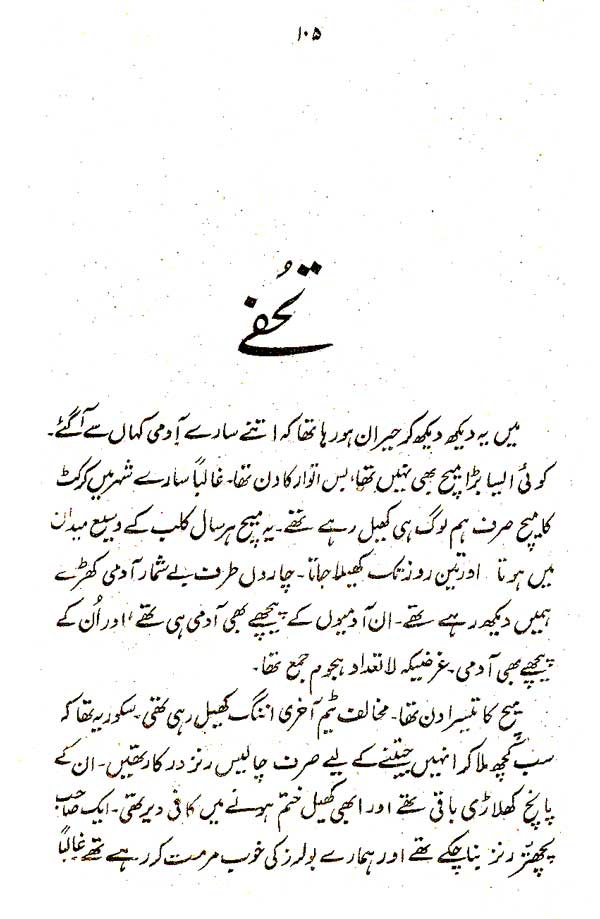 ۱۰۵
تحُفے
میں یہ دیکھ دیکھ کر حیران ہو رہا تھا کہ اتنے سارے آدمی کہاں سے آ گئے۔
کوئی ایسا بڑا میچ بھی نہیں تھا، بس اتوار کا دن تھا۔ غالباً سارے شہر میں کرکٹ
کا میچ صرف ہم لوگ ہی کھیل رہے تھے۔ یہ میچ ہر سال کلب کے وسیع میدان
میں ہوتا اور تین روز تک کھیلا جاتا۔ چاروں طرف بے شمار آدمی کھڑے
ہمیں دیکھ رہے تھے۔ ان آدمیوں کے پیچھے بھی آدمی ہی تھے، اور اُن کے
پیچھے بھی آدمی۔ غرضیکہ لاتعداد ہجوم جمع تھا۔
میچ کا تیسرا دن تھا۔ مخالف ٹیم آخری اننگ کھیل رہی تھی۔ سکور یہ تھا کہ
سب کچھ ملا کر انہیں جیتنے کے لیے صرف چالیس رنز درکار تھیں۔ ان کے
پانچ کھلاڑی باقی تھے اور ابھی کھیل ختم ہونے میں کافی دیر تھی۔ ایک صاحب
پچھتر رنز بنا چکے تھے اور ہمارے بولرز کی خوب مرمت کر رہے تھے غالباً